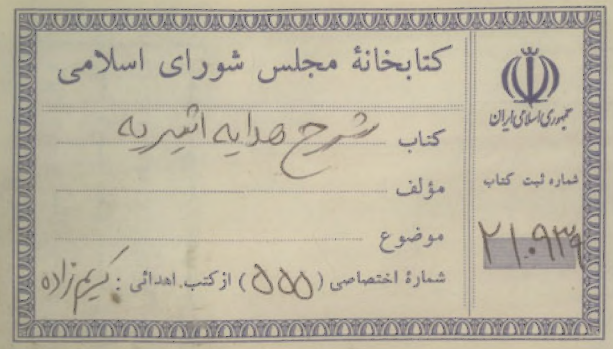 کتابخانهٔ مجلس شورای اسلامی
کتاب شرح هدایه اثیریه
مؤلف
موضوع
شمارهٔ اختصاصی (۵۵۵) از کتب اهدائی : کریم‌زاده
جمهوری اسلامی ایران
شماره ثبت کتاب
۲۱۰۹۳۹